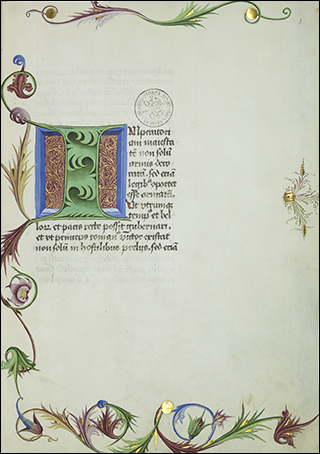 IMperatori
am maiesta
tē non solū
armis deco
ratā. sed eciā
legibꝰ oportet
esse armatā.
Ut utrunqꝫ
tempꝰ et bel
loꝝ et pacis recte possit gubernari.
et ut princeps romanꝰ victor existat
non solū in hostilibus preliis. sed eciā